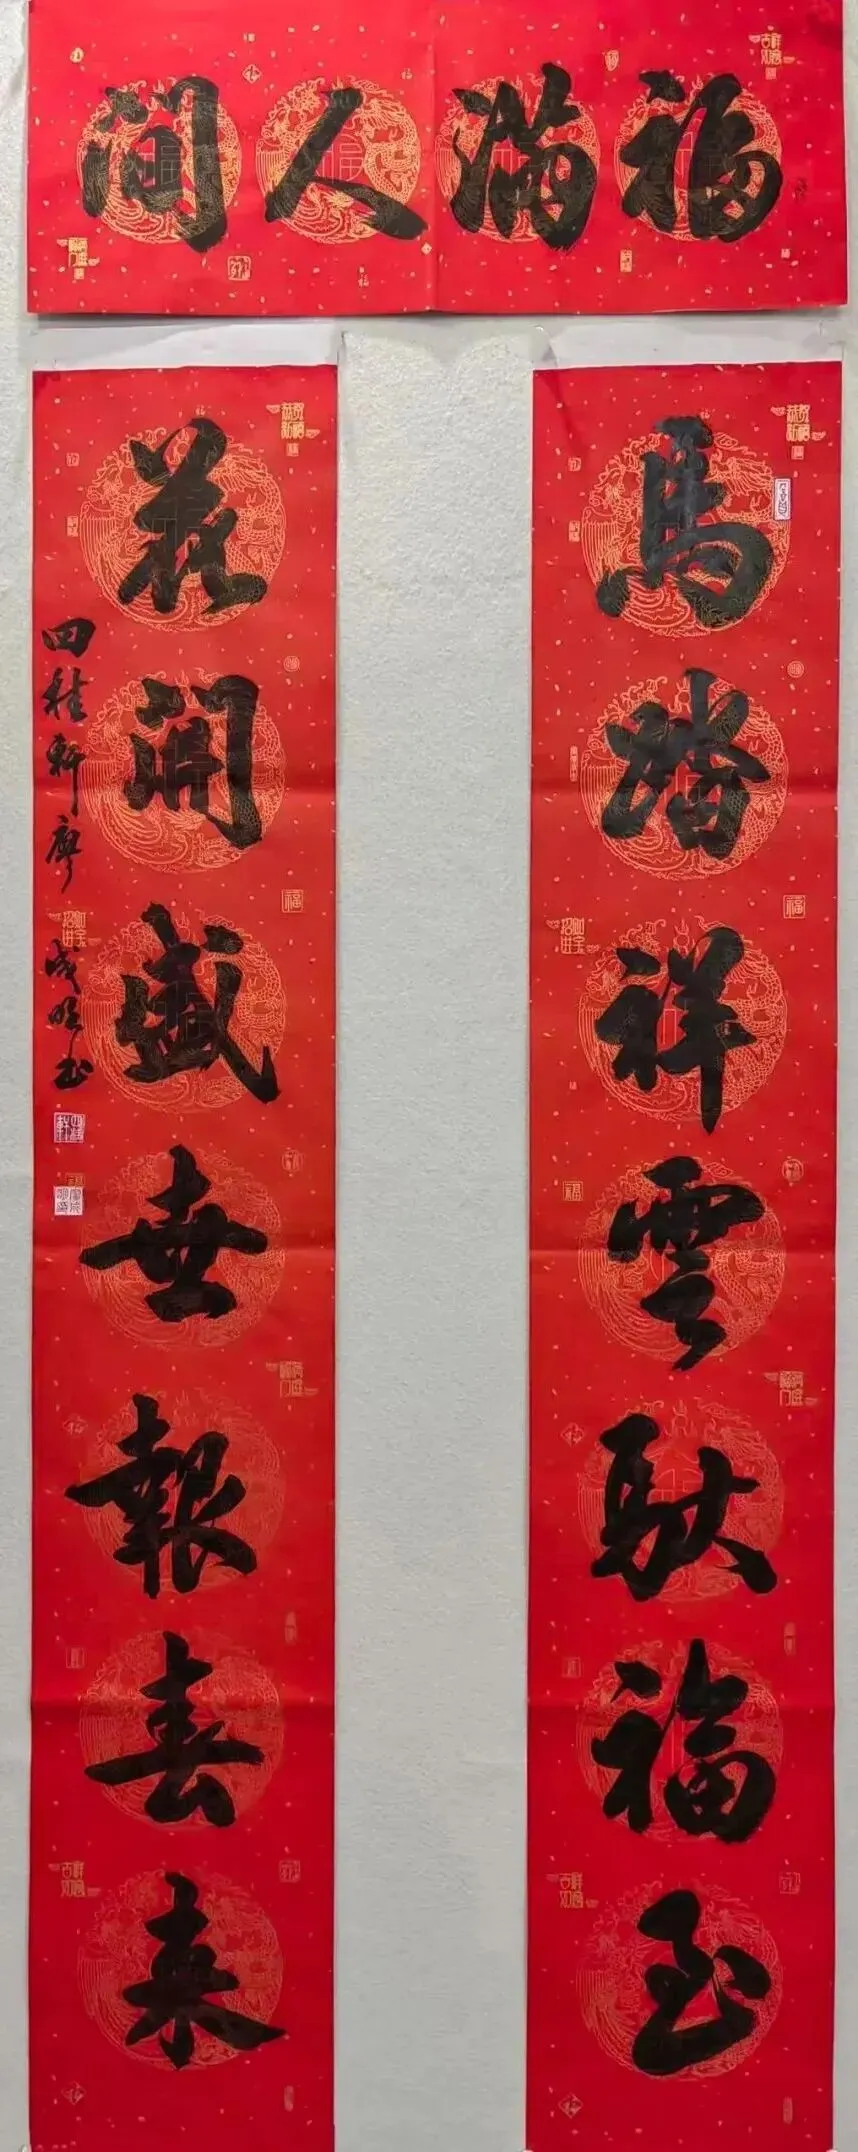 福滿人間
馬踏祥雲馱福至
花開盛世報春来
四桂軒廖成明书